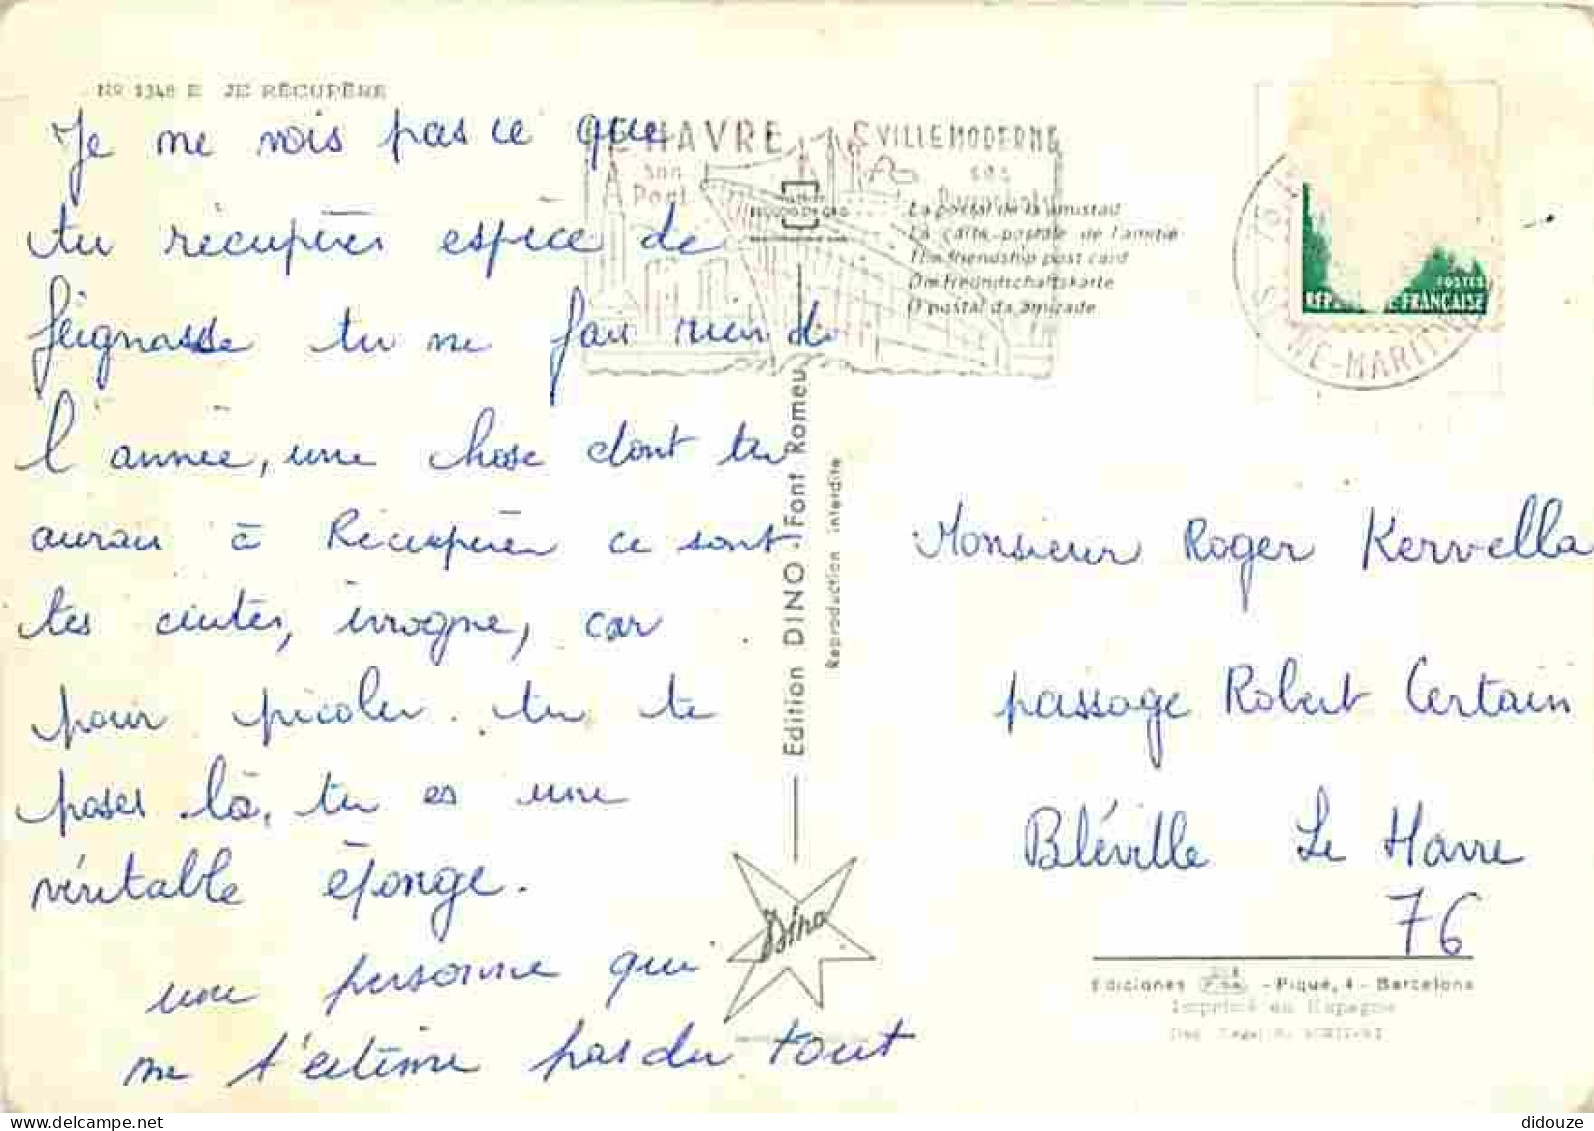 No 1348 E JE RÉCUPÈRE
Je ne vois pas ce que
tu récupères espèce de
feignasse tu ne fais rien de
l'année, une chose dont tu
aurais à Récupérer ce sont
tes cuites, ivrogne, car
pour picoler tu te
poses là, tu es une
véritable éponge.
une personne qui
ne t'estime pas du tout
LE HAVRE
son
Port
VILLE MODERNE
ses
La postal de la amistad
La carte postale de l'amitié
The friendship post card
Die Freundschaftskarte
O postal da amizade
Edition DINO - Font Romeu
Reproduction interdite
Dino
POSTES
RÉPUBLIQUE FRANÇAISE
76
SEINE-MARITIME
Monsieur Roger Kervella
passage Robert Certain
Bléville Le Havre
76
Ediciones - Piqué, 4 - Barcelona
Imprimé en Espagne
didouze
delcampe.net